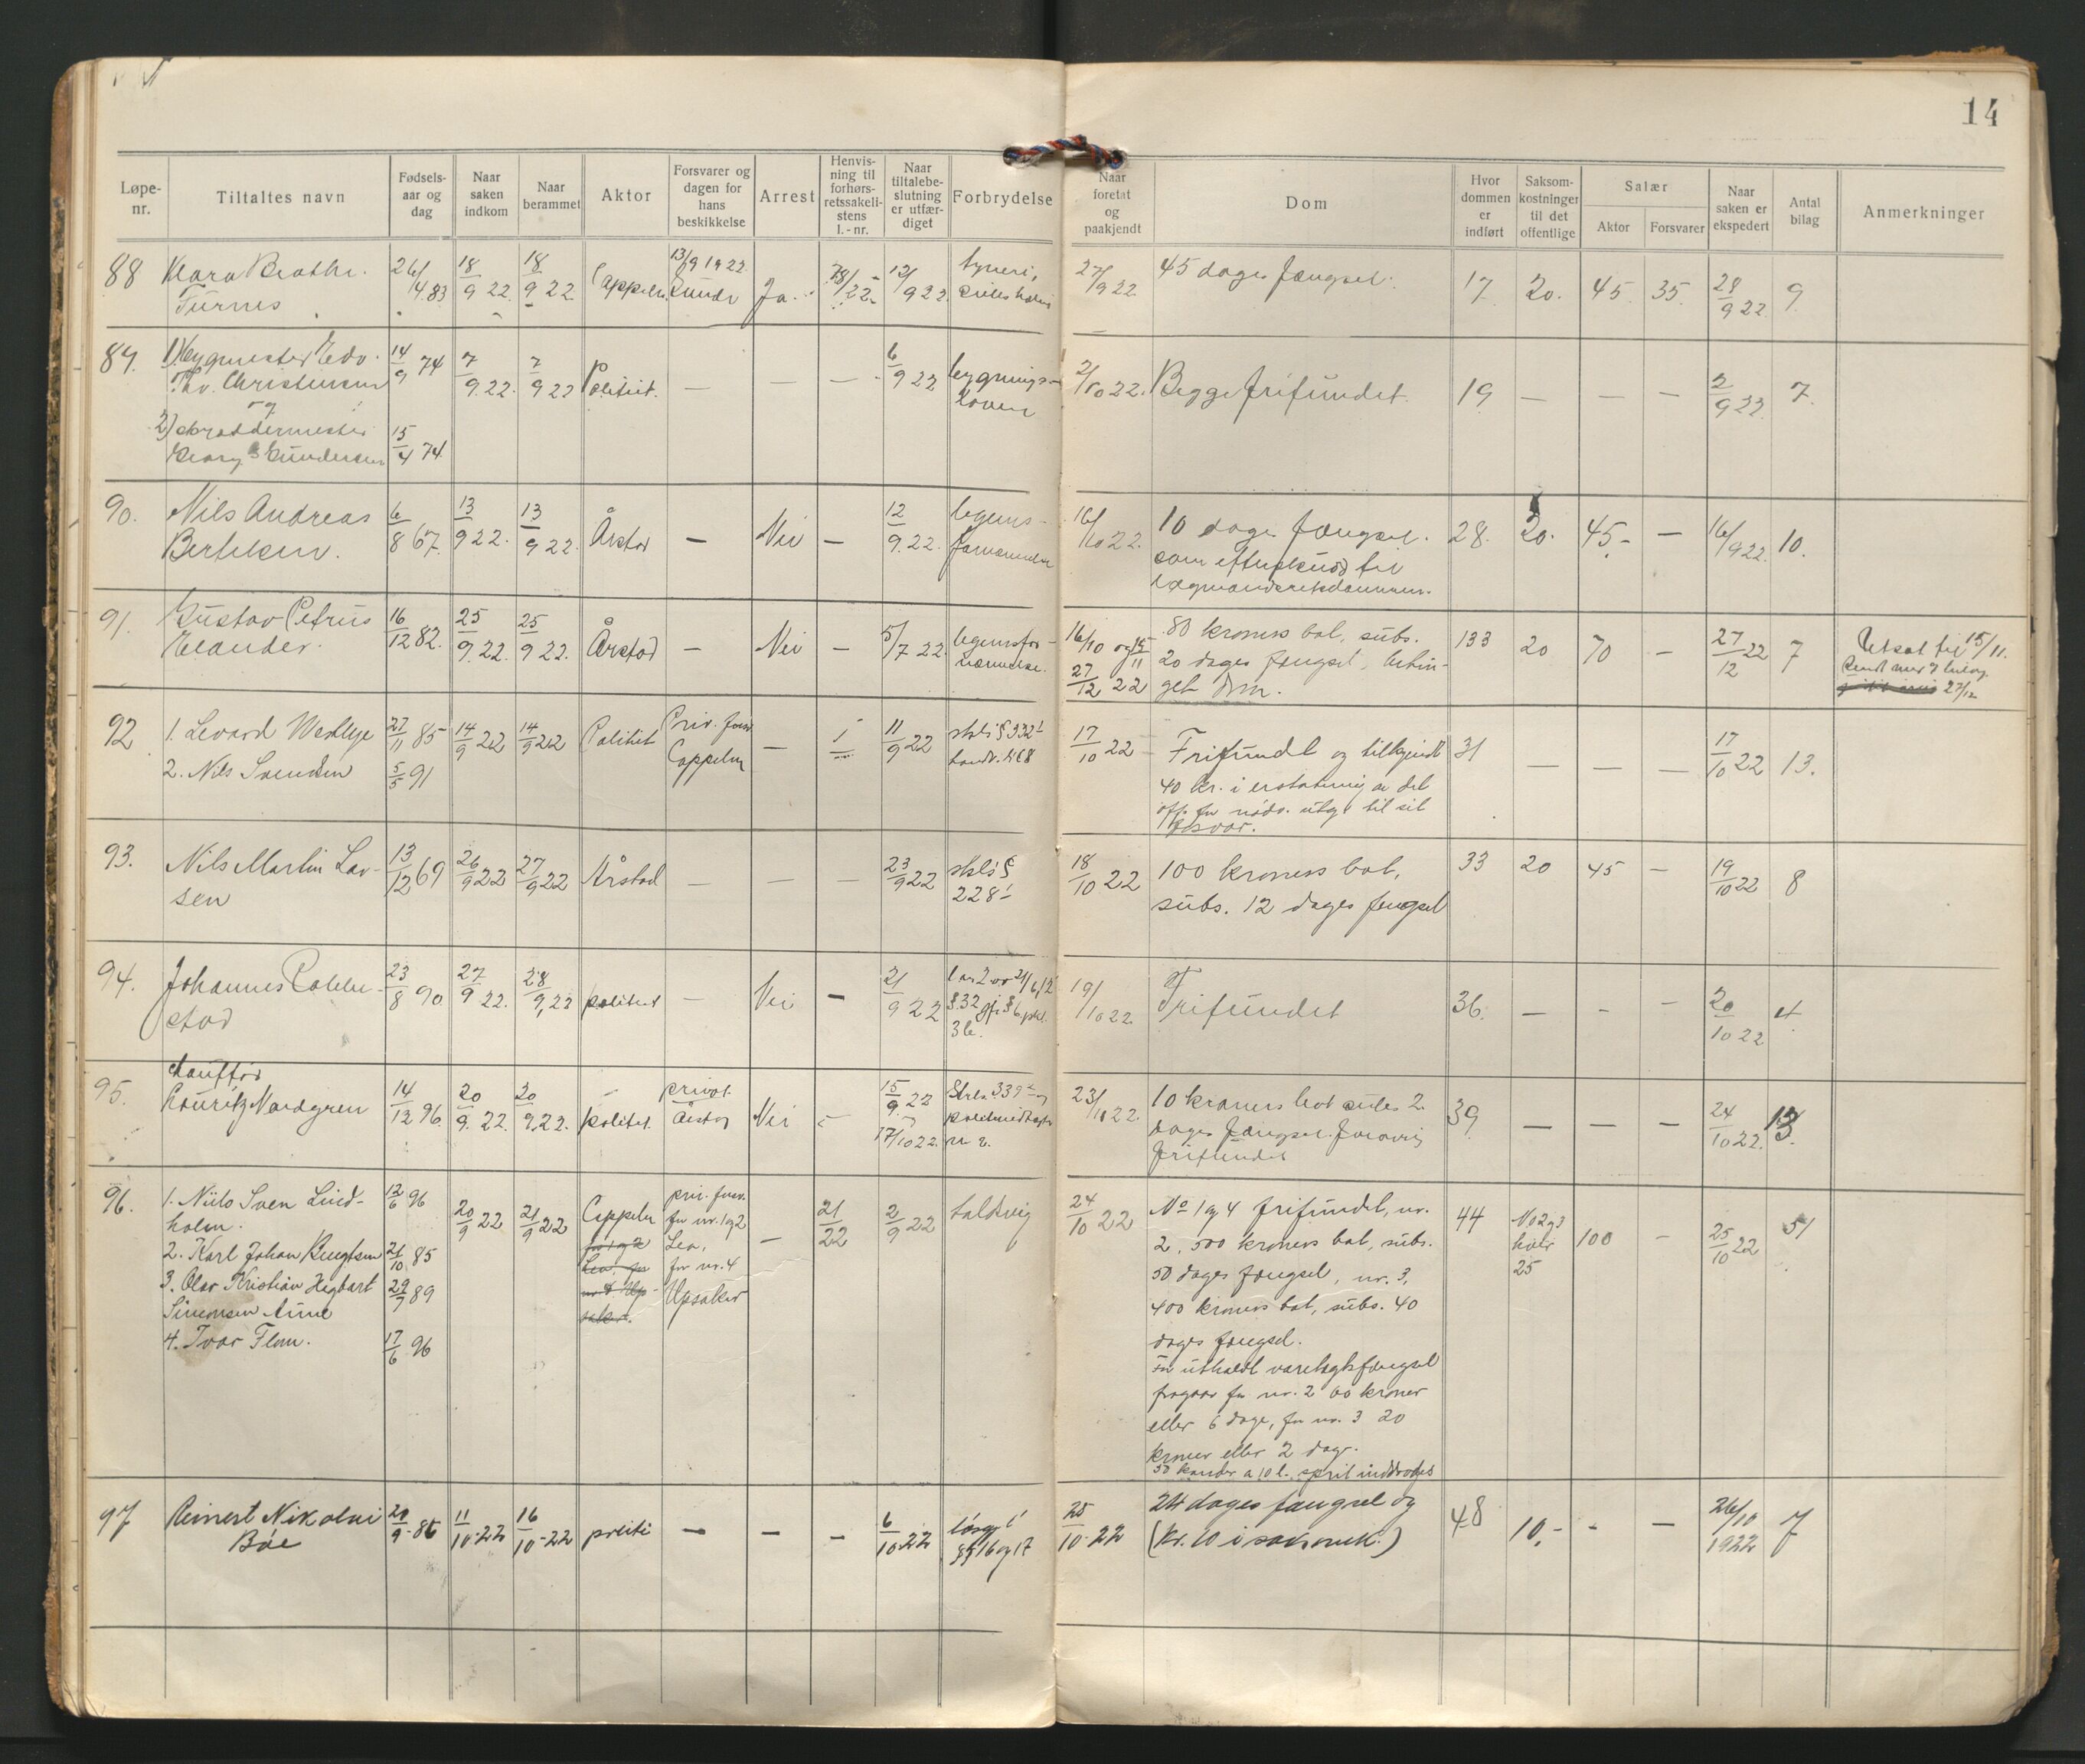 14
Løpe-
nr.
Tiltaltes navn
Fødsels-
aar og
dag
Naar
saken
indkom
Naar
berammet
Aktor
Forsvarer og
dagen for
hans
beskikkelse
Arrest
Henvis-
ning til
forhørs-
retssakeli-
stens
l.-nr.
Naar
tiltalebe-
slutning
er utfær-
diget
Forbrydelse
Naar
foretat
og
paakjendt
Dom
Hvor
dommen
er
indført
Saksom-
kostninger
til det
offentlige
Salær
Aktor
Forsvarer
Naar
saken er
ekspedert
Antal
bilag
Anmerkninger
88 Klara Beathe 26/4.83 18/9 22. 18/9 22 Cappelen 13/9 1922 Ja. 78/22 12/9 22. tyveri,
Furnes Lunde
27/9 22 45 dages fængsel. 17 20. 45 35. 28/9 22 9.
89. 1) bygmester Edv. 14/9 74 7/9 22. 7/9 22 Politiet. — — — 6/9 22 bygnings-
Chr. Christensen loven
og
2) skræddermester 15/4 74
Georg Gundersen
2/10 22. Begge frifundet. 19 — — — 2/9 22. 7.
90. Nils Andreas 6/8 67. 13/9 22. 13/9 22. Årstad — Nei — 12/9. 22. legems-
Bertelsen. fornærmelse
16/10 22. 10 dages fængsel. 28. 20. 45.- — 16/9 22. 10.
som efterskudd til
lagmandsretsdommen.
91. Gustav Petrus 16/12 82. 25/9. 22. 25/9 22. Årstad — Nei — 5/7 22. legemsfor-
Elander. nærmelse.
16/10 og 15/11 80 kroners bot, subs. 133 20 70 — 27/12 22 7 Utsat til 15/11.
27/12 22 20 dages fængsel, betin-
get dom. 27/12
92 1. Levard Westlye 27/11 85 14/9 22 14/9 22 Politiet Priv. forsv. — 11/9 22 strls § 332
2. Nils Svendsen 5/5 91 Cappelen
17/10 22 Frifundet og tilkjendt 31 — — — 17/10 22 13.
40 kr. i erstatning av det
off. for nødv. utg. til sit
forsvar.
93. Nils Martin Lar- 13/12 69 26/9 22 27/9 22 Årstad — — — 23/9 22 strls §
sen 228
18/10 22 100 kroners bot, 33 20 45 — 19/10 22 8
subs. 12 dages fængsel
94. Johannes 23/8 90 27/9 22. 28/9, 22 politiet — Nei — 21/9 22
stad § 32
19/10 22. Frifundet 36. — - — 20/10 22 4.
95. Chauffør
Louritz Nordgren 14/12 96. 20/9. 22. 20/9, 22. politiet. privat. Nei — 15/9. 22 Strl. 339
Årstad 17/10 22.
23/10 22. 10 kroners bot subs 2 39 — — — 24/10 22. 13.
dages fængsel. Forøvrig
frifundet
96. 1. Niels Sven Lind- 12/6 96 20/9 22 21/9 22 Cappelen priv. forsv. — 21/22 2/9 22 toldsvig
holm. for nr. 1 og 2
2. Karl Johan Bengtsen 21/10 85 Lea,
3. Olav Kristian Hegbart 29/7 89 for nr. 4
Simonsen Aune Upsaker
4. Ivar Flom. 17/6 96
24/10 22 No 1 og 4 frifundet, nr. 44 No 2 og 3 100 — 25/10 22 51
2, 500 kroners bot, subs. hver
50 dages fængsel, nr. 3, 25
400 kroners bot, subs. 40
dages fængsel.
For utholdt varetægtsfængsel
fragaar for nr. 2 60 kroner
eller 6 dage, for nr. 3 20
kroner eller 2 dage.
50 kander a 10 l. sprit inddrages
97 Reinert Nikolai 20/9-86 11/10-22 16/10-22 politi — — — 6/10 22 løsgl.
Bøe §§ 16 og 17
25/10-22 24 dages fængsel og 48 10,- - — 26/10 1922 7
(kr. 10 i saksomk.)